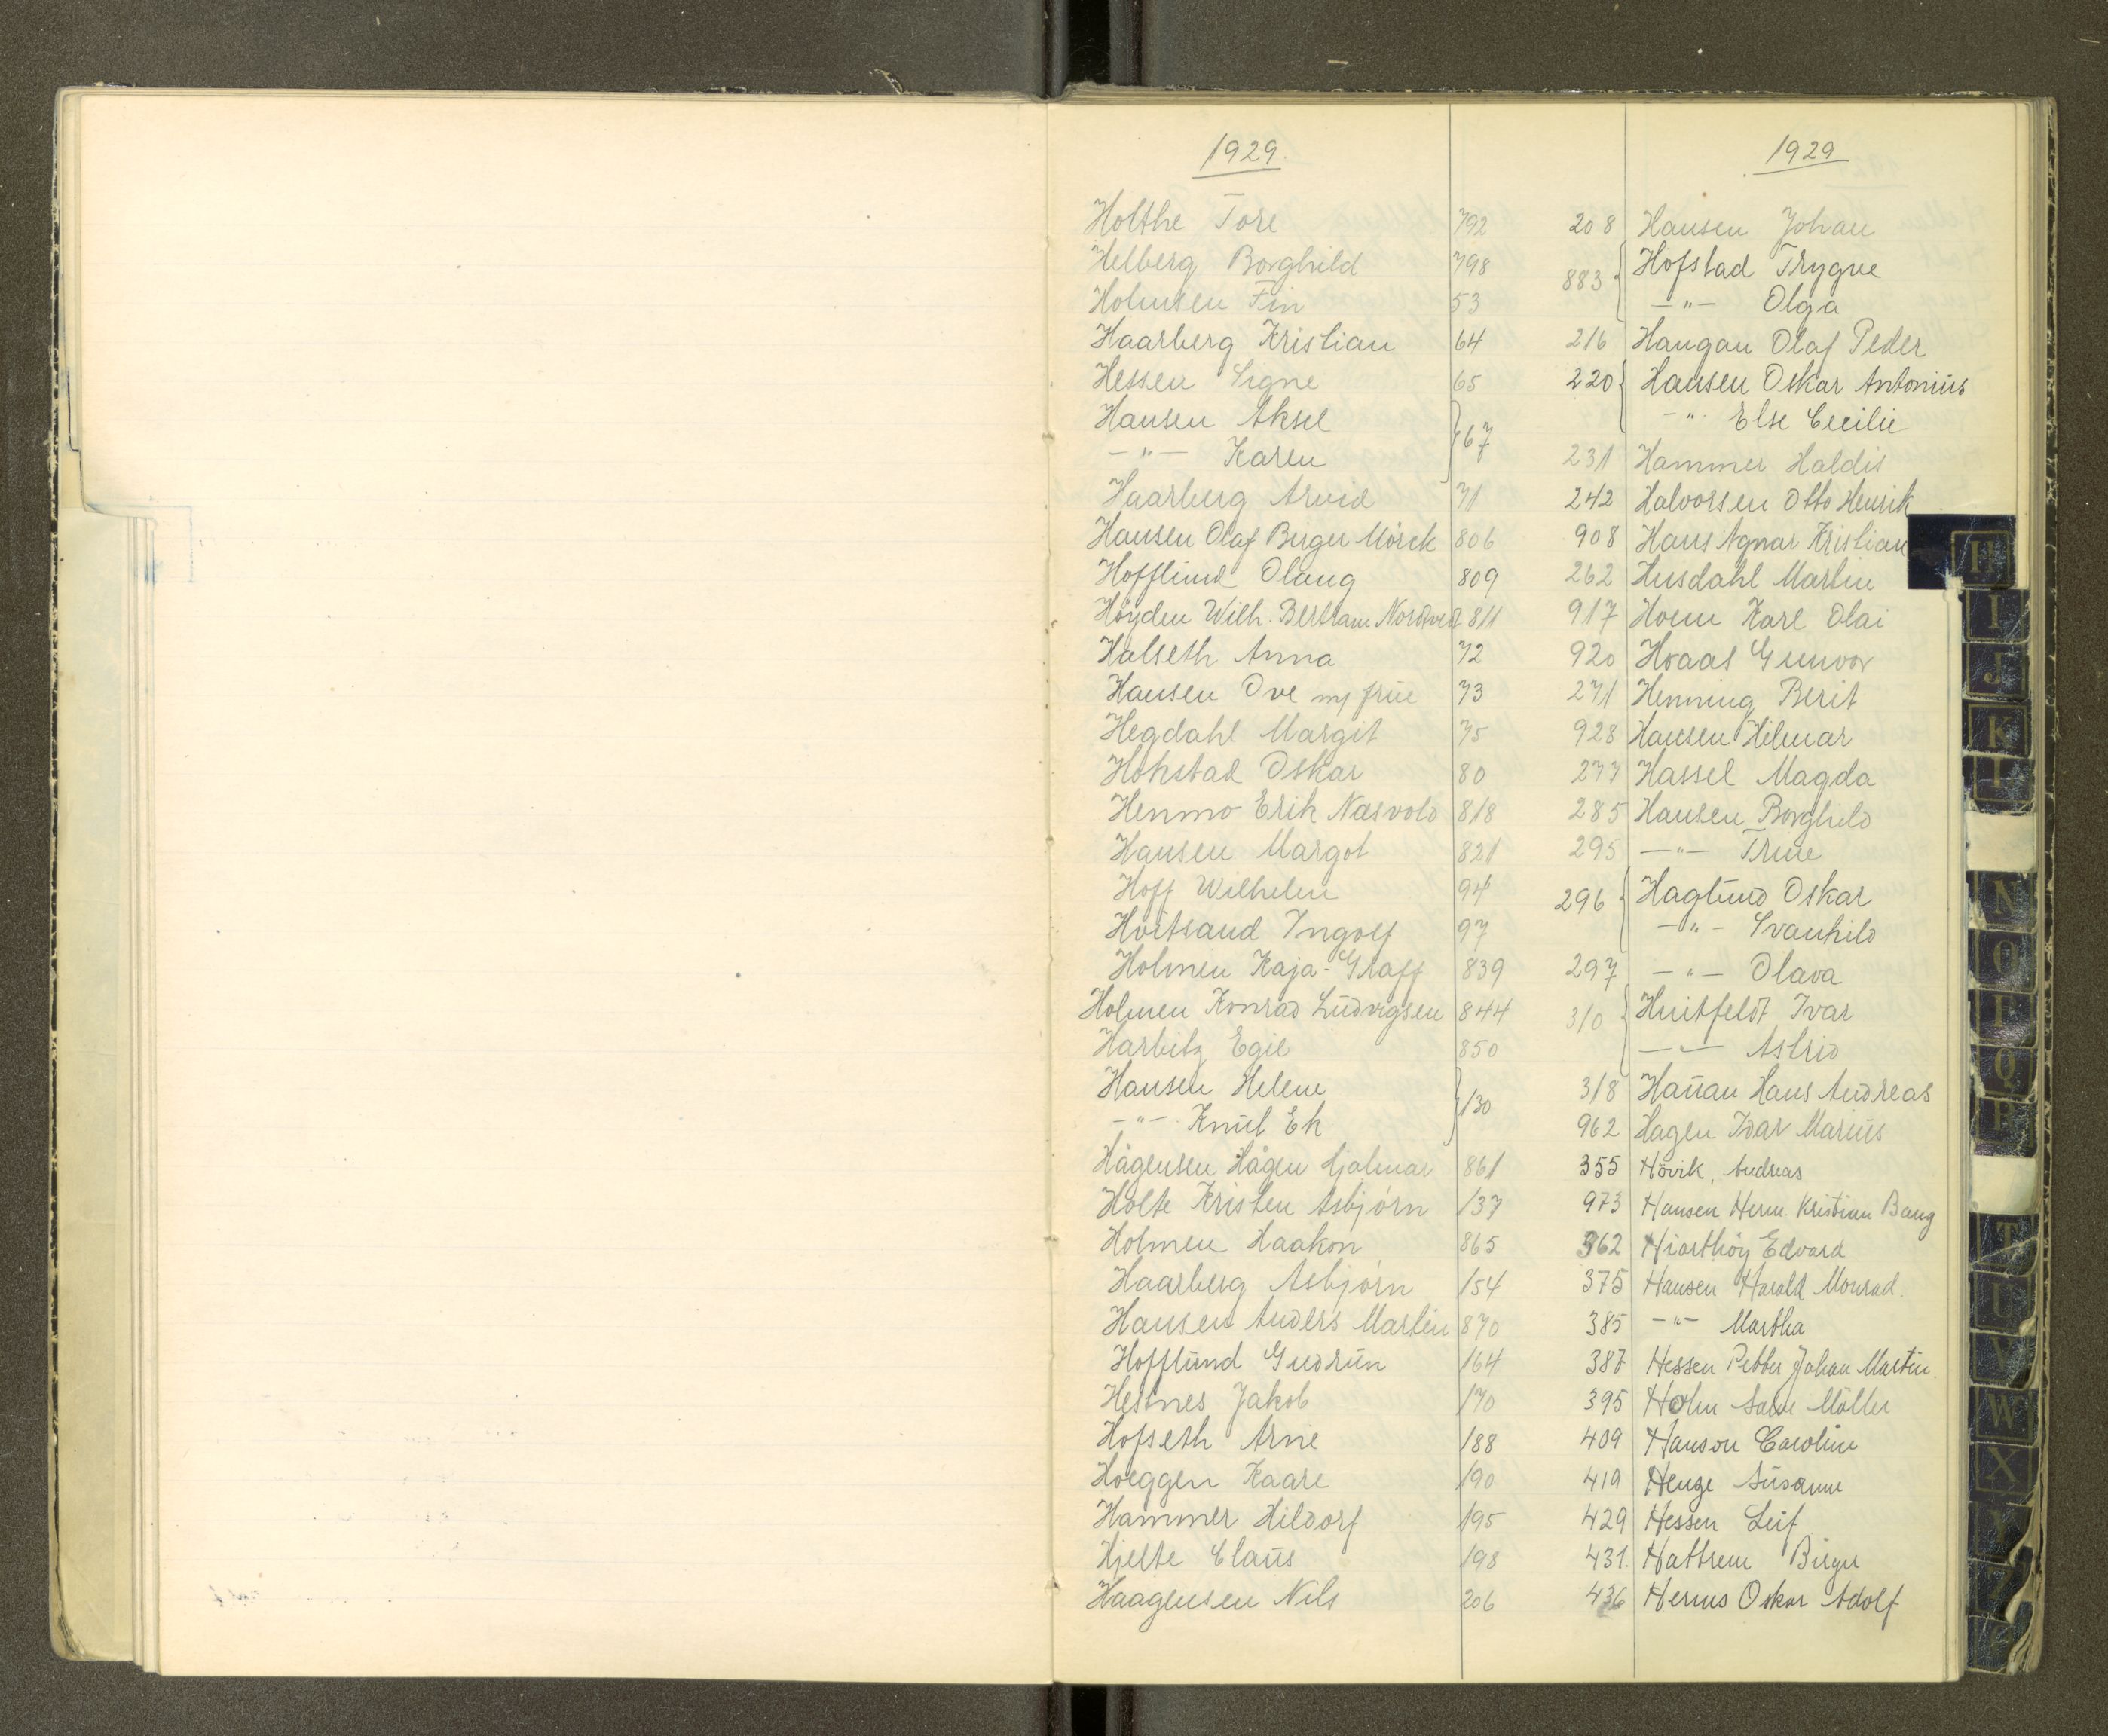 1929.
Holthe Tore 792
Helberg Borghild 798
Holmsen Fin 53
Haarberg Kristian 64
Hessen Signe 65
Hansen Aksel } 67
— " — Karen
Haarberg Arvid 71
Hansen Olaf Birger Mörck 806
Hofflund Olaug 809
Höyden Wilh. Bertram Nordtvedt 811
Halseth Anna 72
Hansen Ove m/ frue 73
Hegdahl Margit 75
Hokstad Oskar 80
Henmo Erik Næsvold 818
Hansen Margot 821
Hoff Wilhelm 94
Hvitsand Ingolf 97
Holmen Kaja-Graff 839
Holmen Konrad Ludvigsen 844
Harbitz Egil 850
Hansen Helene } 130
— " — Knut Ek
Hågensen Hågen Hjalmar 861
Holte Kristen Asbjörn 137
Holmen Haakon 865
Haarberg Asbjörn 154
Hansen Anders Martin 870
Hofflund Gudrun 164
Hestnes Jakob 170
Hofseth Arne 188
Hoeggen Kaare 190
Hammer Hildorf 195
Hjelte Claus 198
Haagensen Nils 206
1929
208 Hansen Johan
883 { Hofstad Trygve
— " — Olga
216 Haugan Olaf Peder
220 { Hansen Oskar Antonius
— " Else Cecilie
231 Hammer Haldis
242 Halvorsen Otto Henrik
908 Hans Agnar Kristian
262 Husdahl Martin
917 Hoem Karl Olai
920 Hraas Gunvor
271 Henning Berit
928 Hansen Hilmar
277 Hassel Magda
285 Hansen Borghild
295 — " — Trine
296 { Haglund Oskar
— " — Svanhild
297 — " — Olava
310 { Huitfeldt Ivar
— " — Astrid
318 Hanan Hans Andreas
962 Hagen Ivar Marius
355 Hövik, Andreas
973 Hansen Herm. Kristian Bang
362 Hiorthöy Edvard
375 Hansen Harald Monrad.
385 — " — Martha
387 Hessen Petter Johan Martin.
395 Holm Møller
409 Hanson Caroline
419 Henge Susanne
429 Hessen Leif
431. Hattrem Birger
436 Herms Oskar Adolf
H
I
J
K
L
N
O
P
Q
R
T
U
V
W
X
Y
Z